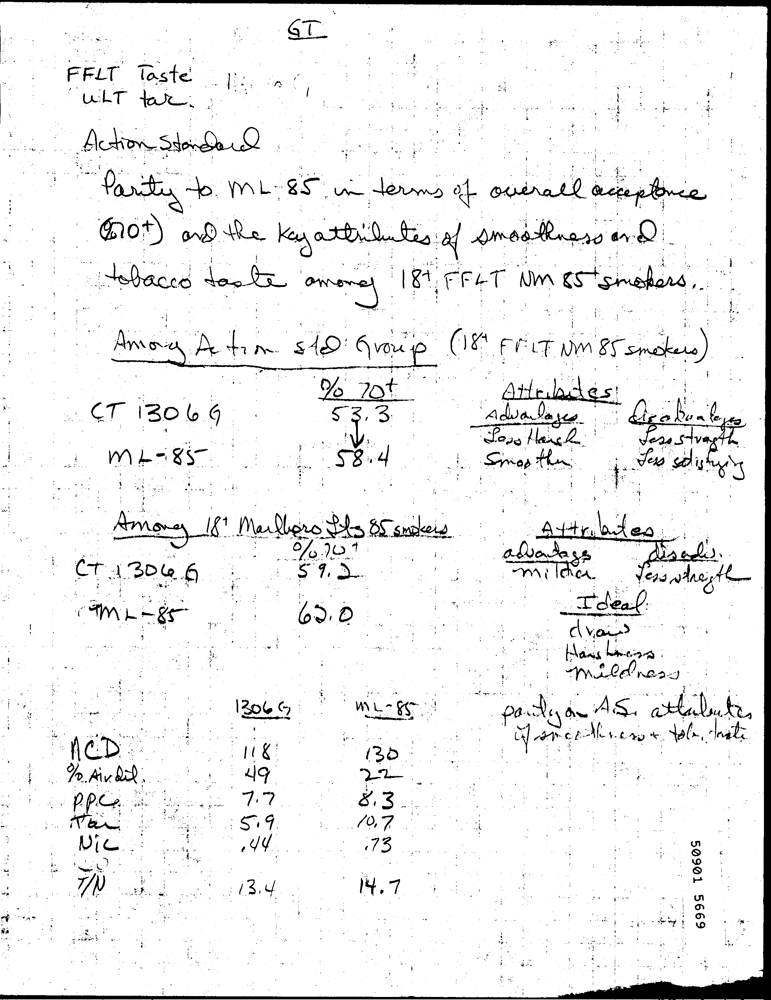 GT
FFLT Taste
ULT tar.
Action Standard
Parity to ML-85 in terms of overall acceptance
(%70+) and the key attributes of smoothness and
tobacco taste among 18+ FFLT NM 85 smokers.
Among Action std Group (18+ FFLT NM 85 smokers)
% 70+ Attributes
CT 1306 G 53.3 Advantages disadvantages
Less Harsh Less strength
ML-85 58.4 Smoother Less satisfying
Among 18+ Marlboro Lts 85 smokers Attributes
% 70+ advantage disadv.
CT 1306 G 59.2 milder Less strength
ML-85 Ideal
draw
Harshness
mildness
1306 G ML-85 parity on A.S. attributes
of smoothness + tob. taste
NCD 118 130
% Air dil. 49 22
ppc 7.7 8.3
Tar 5.9 10.7
Nic .44 .73
T/N 13.4 14.7
50901 5669